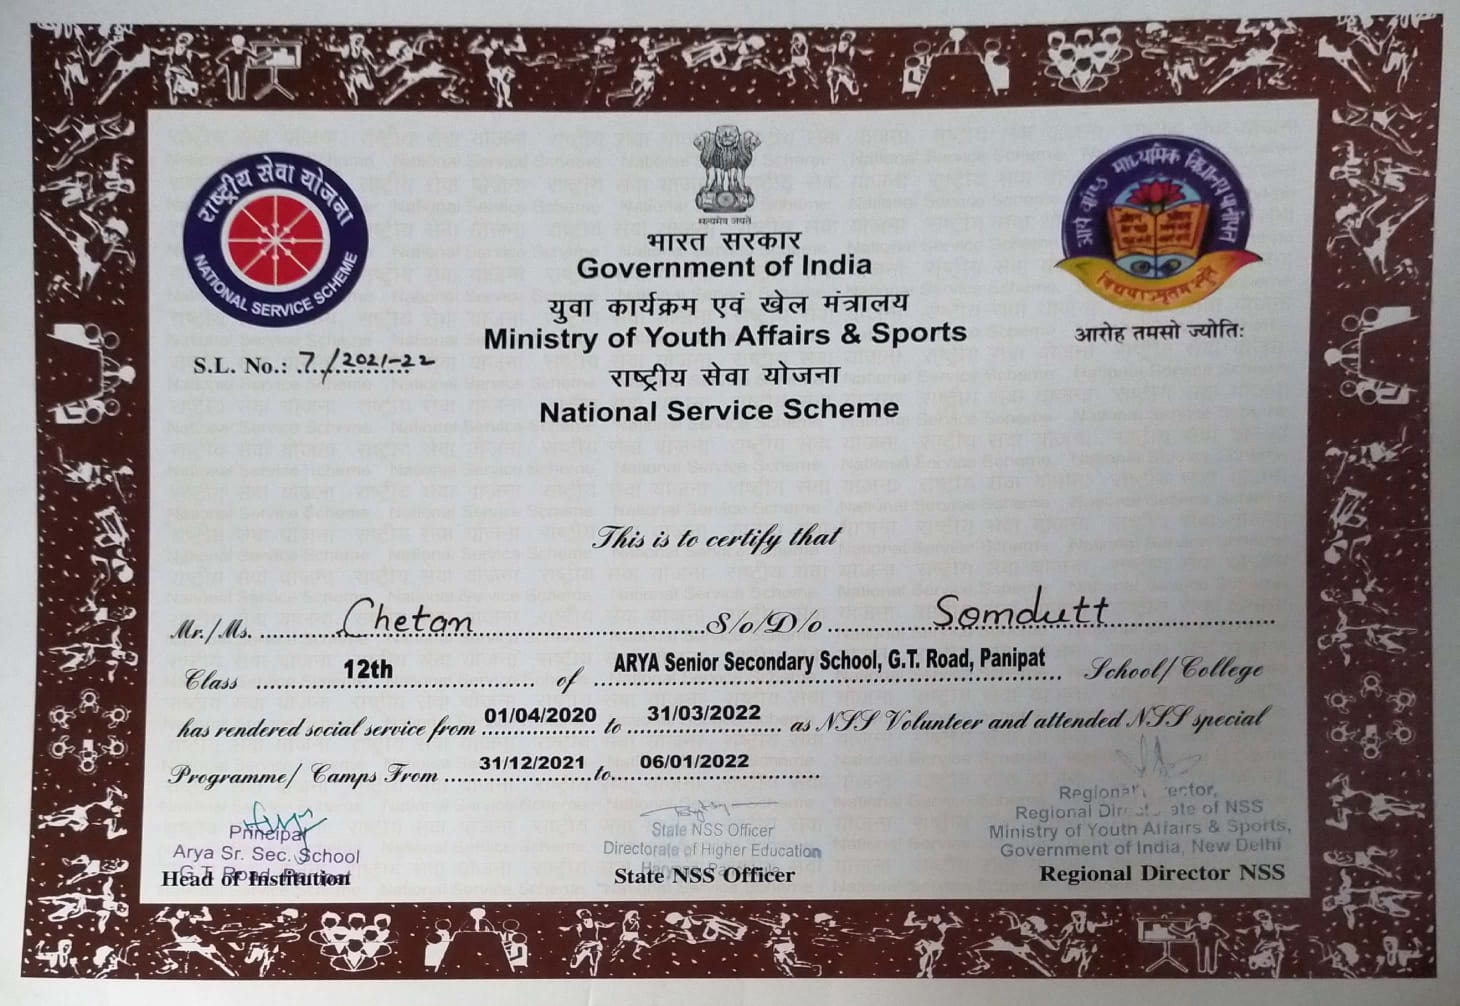 राष्ट्रीय सेवा योजना
NATIONAL SERVICE SCHEME
S.L. No.: 7/2021-22
सत्यमेव जयते
भारत सरकार
Government of India
युवा कार्यक्रम एवं खेल मंत्रालय
Ministry of Youth Affairs & Sports
राष्ट्रीय सेवा योजना
National Service Scheme
माध्यमिक विद्यालय पानीपत
आरोह तमसो ज्योतिः
This is to certify that
Mr./Ms. Chetan S/o/D/o Somdutt
Class 12th of ARYA Senior Secondary School, G.T. Road, Panipat School/College
has rendered social service from 01/04/2020 to 31/03/2022 as NSS Volunteer and attended NSS special
Programme/ Camps From 31/12/2021 to 06/01/2022
Principal
Arya Sr. Sec. School
G.T. Road, Panipat
Head of Institution
State NSS Officer
Directorate of Higher Education
State NSS Officer
Regional
Regional of NSS
Ministry of Youth Affairs & Sports,
Government of India, New Delhi
Regional Director NSS